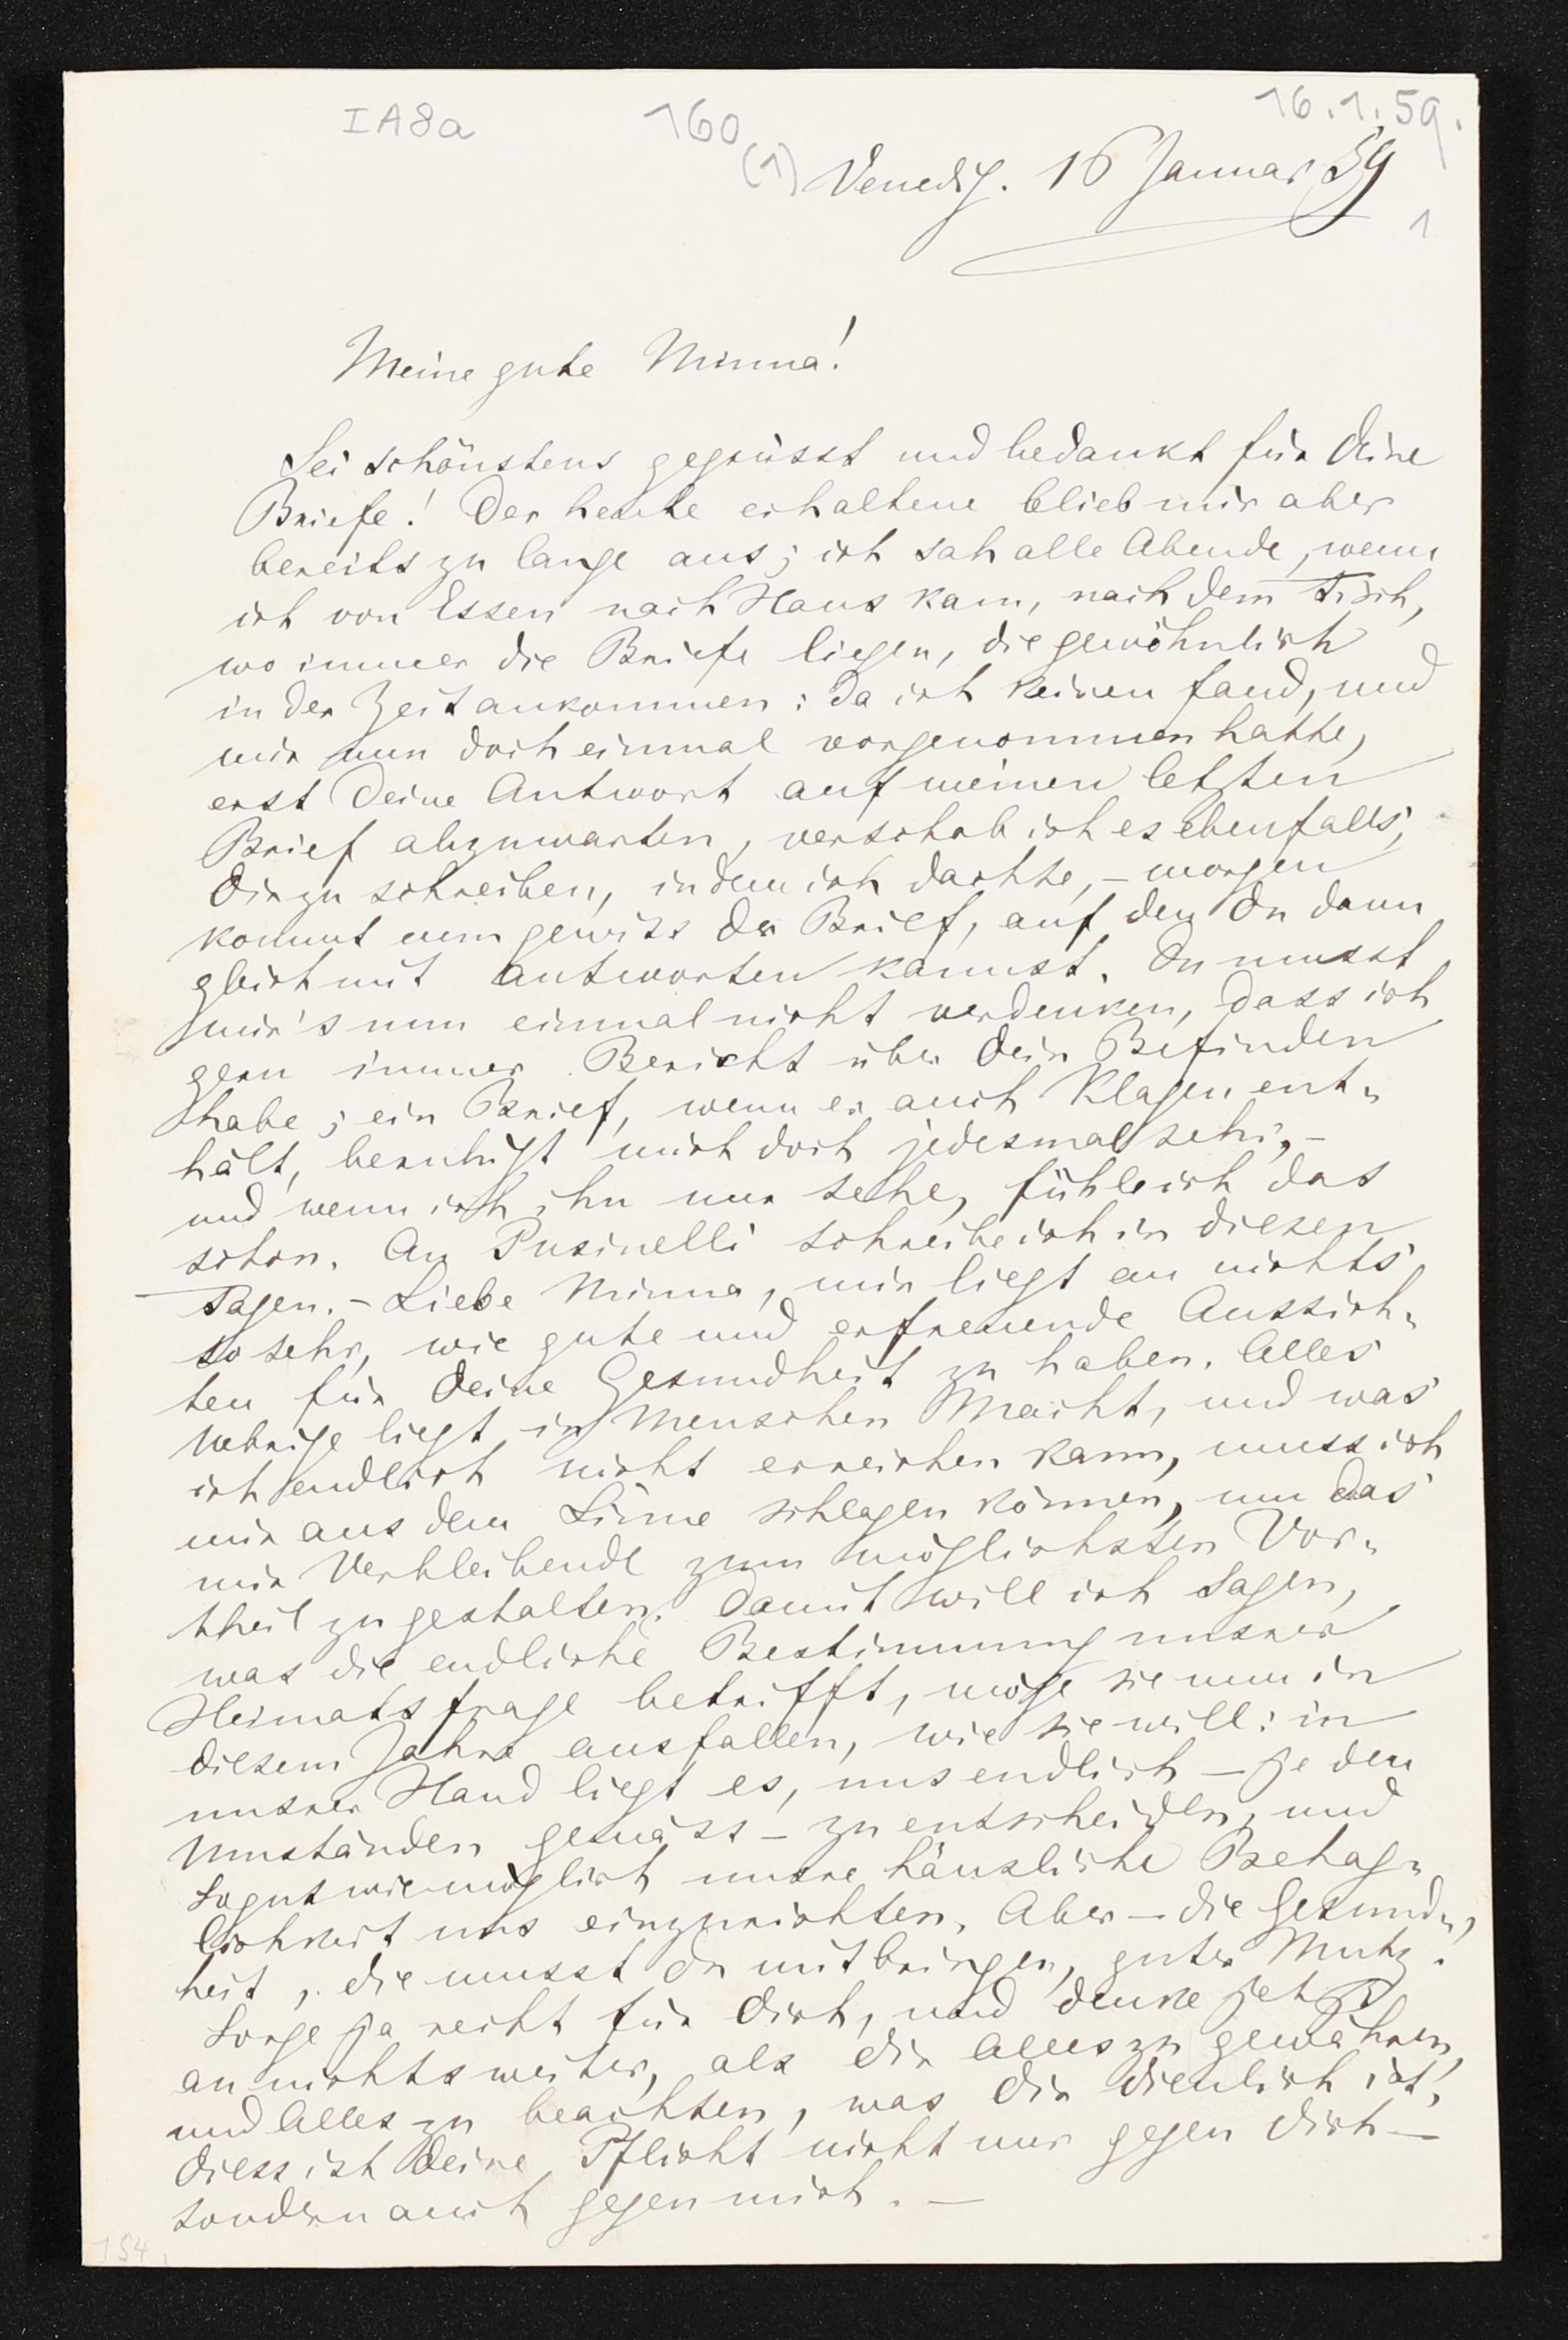 IA8a 160 16.1.59.
(1) Venedig. 16 Januar 59
1
Meine gute Minna!
Sei schönstens gegrüsst und bedankt für Deine
Briefe! Der heute erhaltene blieb mir aber
bereits zu lange aus; ich sah alle Abende, wenn
ich von Essen nach Haus kam, nach dem Tisch,
wo immer die Briefe liegen, die gewöhnlich
in der Zeit ankommen: da ich keinen fand, und
mir nun doch einmal vorgenommen hatte,
erst Deine Antwort auf meinen letzten
Brief abzuwarten, verschob ich es ebenfalls,
Dir zu schreiben, indem ich dachte, – morgen
kommt nun gewiss der Brief, auf den Du dann
gleich mit antworten kannst. Du musst
mir's nun einmal nicht verdenken, dass ich
gern immer Bericht über Dein Befinden
habe; ein Brief, wenn er auch Klagen ent-
hält, beruhigt mich doch jedesmal sehr, –
und wenn ich ihn nur sehe, fühle ich das
schon. An Pusinelli schreibe ich in diesen
Tagen. – Liebe Minna, mir liegt an nichts
so sehr, wie gute und erfreuende Aussich-
ten für Deine Gesundheit zu haben. Alles
Uebrige liegt in Menschen Macht, und was
ich endlich nicht erreichen kann, muss ich
mir aus dem Sinne schlagen können, um das
mir Verbleibende zum möglichsten Vor-
theil zu gestalten. Damit will ich sagen,
was die endliche Bestimmung unsrer
Heimatsfrage betrifft, möge sie nun in
diesem Jahre ausfallen, wie sie will: in
unsrer Hand liegt es, uns endlich – je den
Umständen gemäss – zu entscheiden, und
so gut wie möglich unsre häusliche Behag-
lichkeit uns einzurichten. Aber – die Gesund-
heit, die musst Du mitbringen, guter Mutz!
Sorge ja recht für Dich, und denke jetzt
an nichts weiter, als Dir Alles zu gewähren,
und Alles zu beachten, was Dir dienlich ist;
diess ist Deine Pflicht nicht nur gegen Dich –
sondern auch gegen mich. –
154